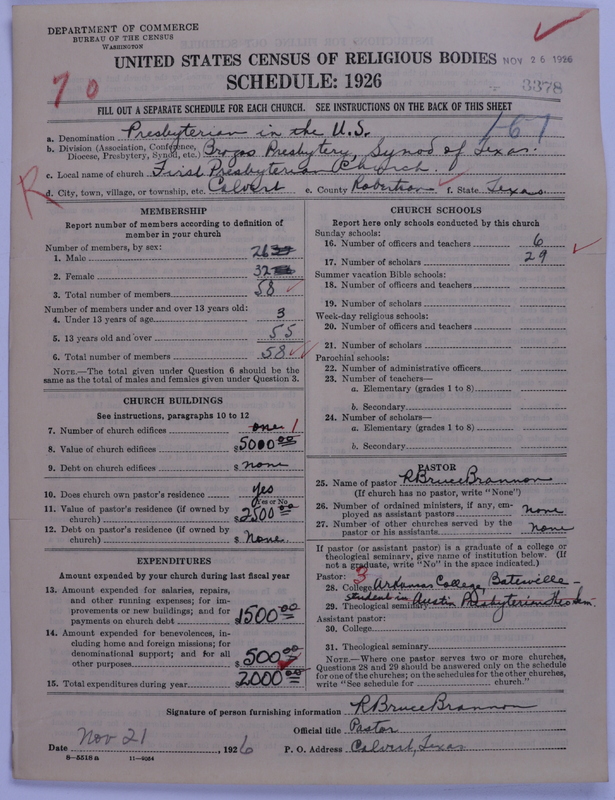 DEPARTMENT OF COMMERCE
BUREAU OF THE CENSUS
WASHINGTON
UNITED STATES CENSUS OF RELIGIOUS BODIES NOV 26 1926
SCHEDULE: 1926 3378
70
FILL OUT A SEPARATE SCHEDULE FOR EACH CHURCH. SEE INSTRUCTIONS ON THE BACK OF THIS SHEET
167
a. Denomination Presbyterian in the U.S.
b. Division (Association, Conference, Diocese, Presbytery, Synod, etc.) Brazos Presbytery, Synod of Texas.
c. Local name of church First Presbyterian Church.
R
d. City, town, village, or township, etc. Calvert e. County Robertson f. State Texas
MEMBERSHIP
Report number of members according to definition of
member in your church
Number of members, by sex:
1. Male 26
2. Female 32
3. Total number of members 58
Number of members under and over 13 years old:
4. Under 13 years of age 3
5. 13 years old and over 55
6. Total number of members 58
NOTE.—The total given under Question 6 should be
same as the total of males and females given under Question 3.
CHURCH BUILDINGS
See instructions, paragraphs 10 to 12
7. Number of church edifices one 1
8. Value of church edifices $5000.00
9. Debt on church edifices $ none
10. Does church own pastor's residence yes
(Yes or No)
11. Value of pastor's residence (if owned by
church) $2500.00
12. Debt on pastor's residence (if owned by
church) $ None.
EXPENDITURES
Amount expended by your church during last fiscal year
13. Amount expended for salaries, repairs,
and other running expenses; for im-
provements or new buildings; and for
payments on church debt $1500.00
14. Amount expended for benevolences, in-
cluding home and foreign missions; for
denominational support; and for all
other purposes $500.00
15. Total expenditures during year $2000.00
CHURCH SCHOOLS
Report here only schools conducted by this church
Sunday schools:
16. Number of officers and teachers 6
17. Number of scholars 29
Summer vacation Bible schools:
18. Number of officers and teachers
19. Number of scholars
Week-day religious schools:
20. Number of officers and teachers
21. Number of scholars
Parochial schools:
22. Number of administrative officers
23. Number of teachers—
a. Elementary (grades 1 to 8)
b. Secondary
24. Number of scholars—
a. Elementary (grades 1 to 8)
b. Secondary
PASTOR
25. Name of pastor R Bruce Brannon
(If church has no pastor, write "None")
26. Number of ordained ministers, if any, em-
ployed as assistant pastors none
27. Number of other churches served by the
pastor or his assistants none
If pastor (or assistant pastor) is a graduate of a college or
theological seminary, give name of institution below. (If
not a graduate, write "No" in the space indicated.)
Pastor: 3
28. College Arkansas College, Batesville—
student in Austin Presbyterian Theo Sem.
29. Theological seminary
Assistant pastor:
30. College
31. Theological seminary
NOTE.—Where one pastor serves two or more churches,
Questions 28 and 29 should be answered only on the schedule
for one of the churches; on the schedules for the other churches,
write "See schedule for church."
Signature of person furnishing information R Bruce Brannon
Official title Pastor
Date Nov 21, 1926 P. O. Address Calvert, Texas
8—5518a 11—9054